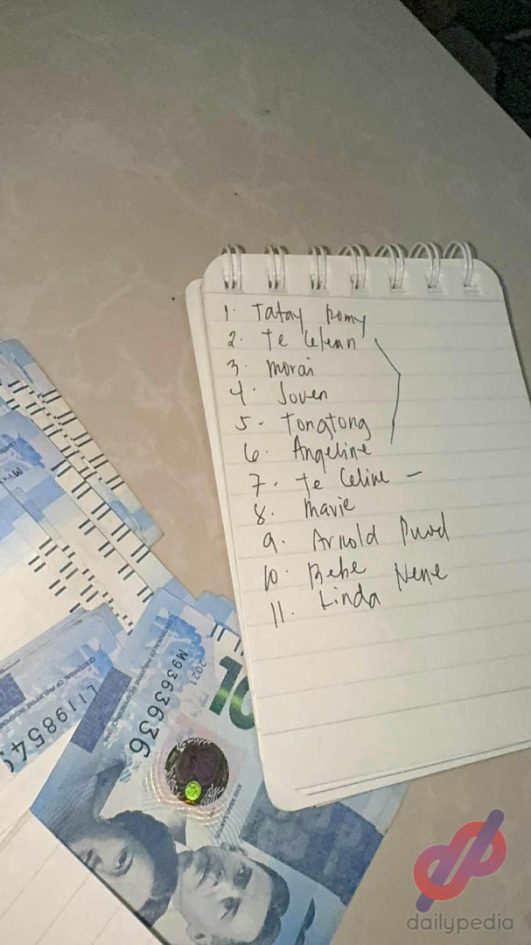 1. Tatay Romy
2. Te Lefenn
3. Morai
4. Joven
5. Tongtong
6. Angeline
7. Te Celine -
8. Mavie
9. Arnold
10. Bebe
11. Linda Nene
2021
M9363636
10
L119854
dailypedia